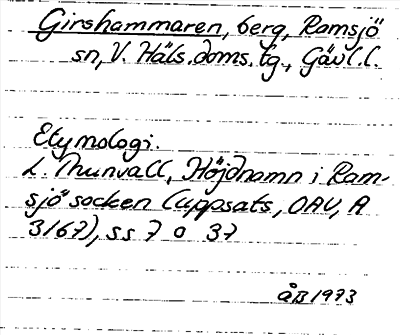 Girshammaren, berg, Ramsjö
sn, V. Häls. doms. tg., Gävl. l.
Etymologi.
L. Thunvall, Höjdnamn i Ram-
sjö socken (uppsats, OAU, A
3167), ss 7 o 37
ÅB 1973